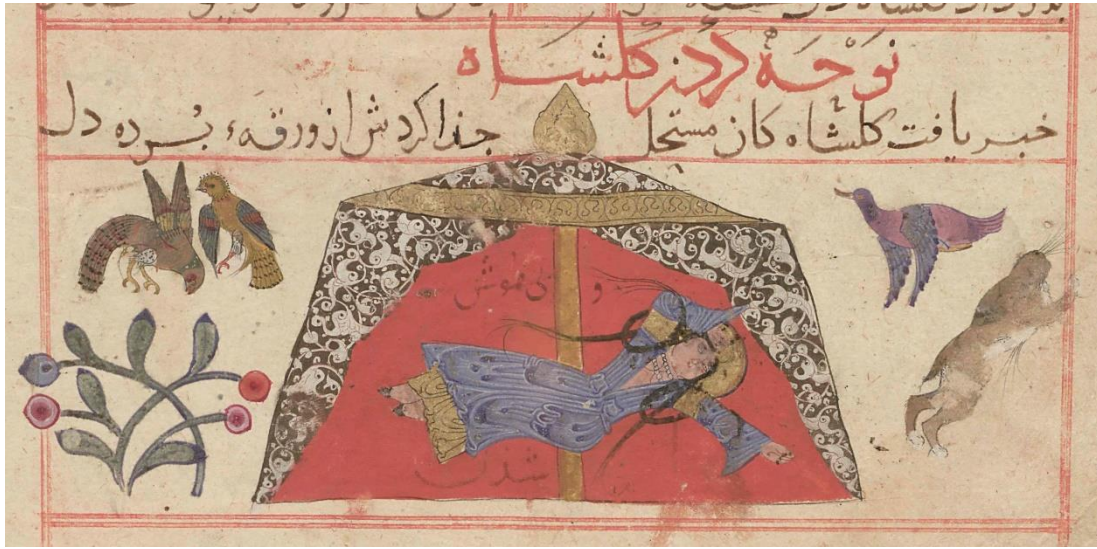 نوحه کردن گلشاه
خبر یافت کلشاه کان مستحل جدا کردش از ورقهء برده دل
و
بی هوش
شدن